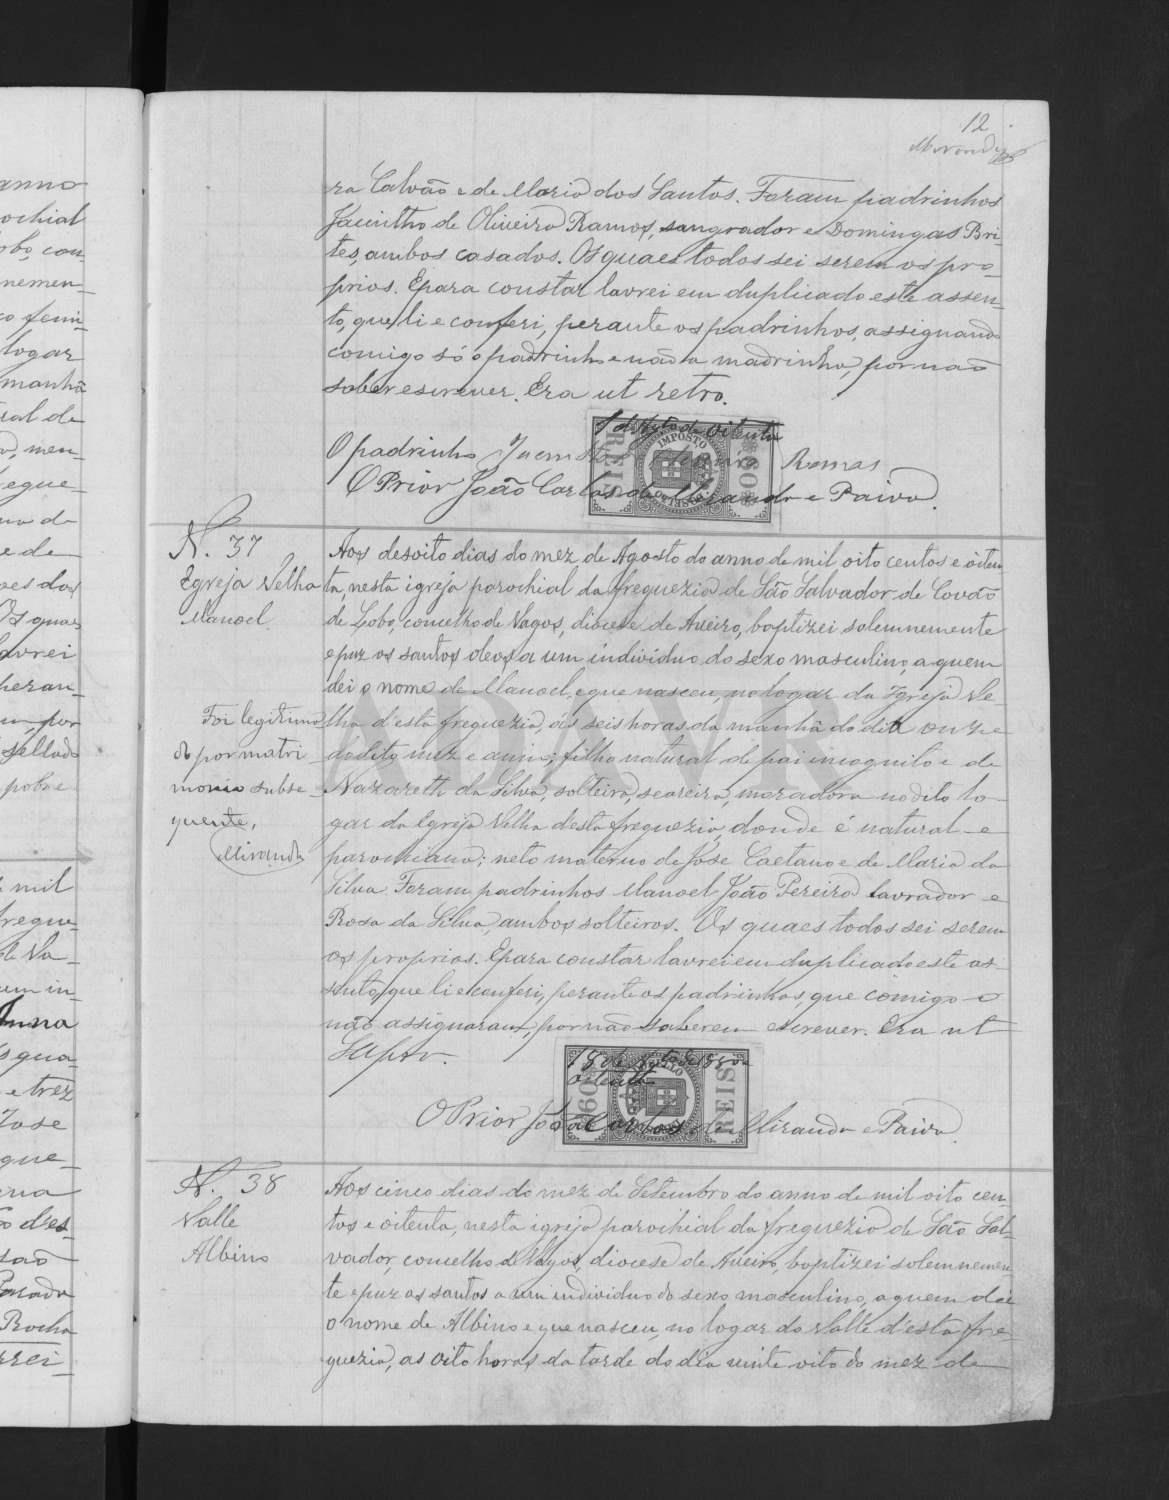 12
Miranda
ra Calvão e de Maria dos Santos. Foram padrinhos
Jacintho de Oliveira Ramos, sangrador e Domingas Bri-
tes, ambos casados. Os quaes todos sei serem os pro-
prios. E para constar lavrei em duplicado este assen-
to, que li e conferi, perante os padrinhos, assignando
comigo só o padrinho e não a madrinha, por não
saber escrever. Era ut retro.
O padrinho Jacintho Oliveira Ramos
O Prior João Carlos de Miranda e Paiva.
IMPOSTO
DO SELLO
REIS
60
N. 37
Egreja Velha
Manoel
Foi legitima
do por matri
monio subse-
quente.
Miranda
Aos desoito dias do mez de Agosto do anno de mil oito centos e oiten-
ta, nesta igreja parochial da freguezia de São Salvador de Covão
de Lobo, concelho de Vagos, diocese de Aveiro, baptizei solemnemente
e puz os santos oleos a um individuo do sexo masculino, a quem
dei o nome de Manoel, e que nasceu, no logar da Igreja Ve-
lha d'esta freguezia, ás seis horas da manhã do dia onze
do dito mez e anno; filho natural de pai incognito e de
Nazareth da Silva, solteira, seareira, moradora no dito lo-
gar da Egreja Velha desta freguezia, donde é natural e
parochiana; neto materno de José Caetano e de Maria da
Silva. Foram padrinhos Manoel João Pereira lavrador e
Rosa da Silva, ambos solteiros. Os quaes todos sei serem
os proprios. E para constar lavrei em duplicado este as-
sento, que li e conferi, perante os padrinhos, que comigo
não assignaram, por não saberem escrever. Era ut
supra.
60
REIS
O Prior João Carlos de Miranda e Paiva.
N. 38
Valle
Albino
Aos cinco dias do mez de Setembro do anno de mil oito cen-
tos e oitenta, nesta igreja parochial da freguezia de São Sal-
vador, concelho de Vagos, diocese de Aveiro, baptizei solemnemen-
te e puz os santos a um individuo do sexo masculino, a quem dei
o nome de Albino e que nasceu, no logar do Valle d'esta fre-
guezia, as oito horas da tarde do dia vinte oito do mez de
ADAVR